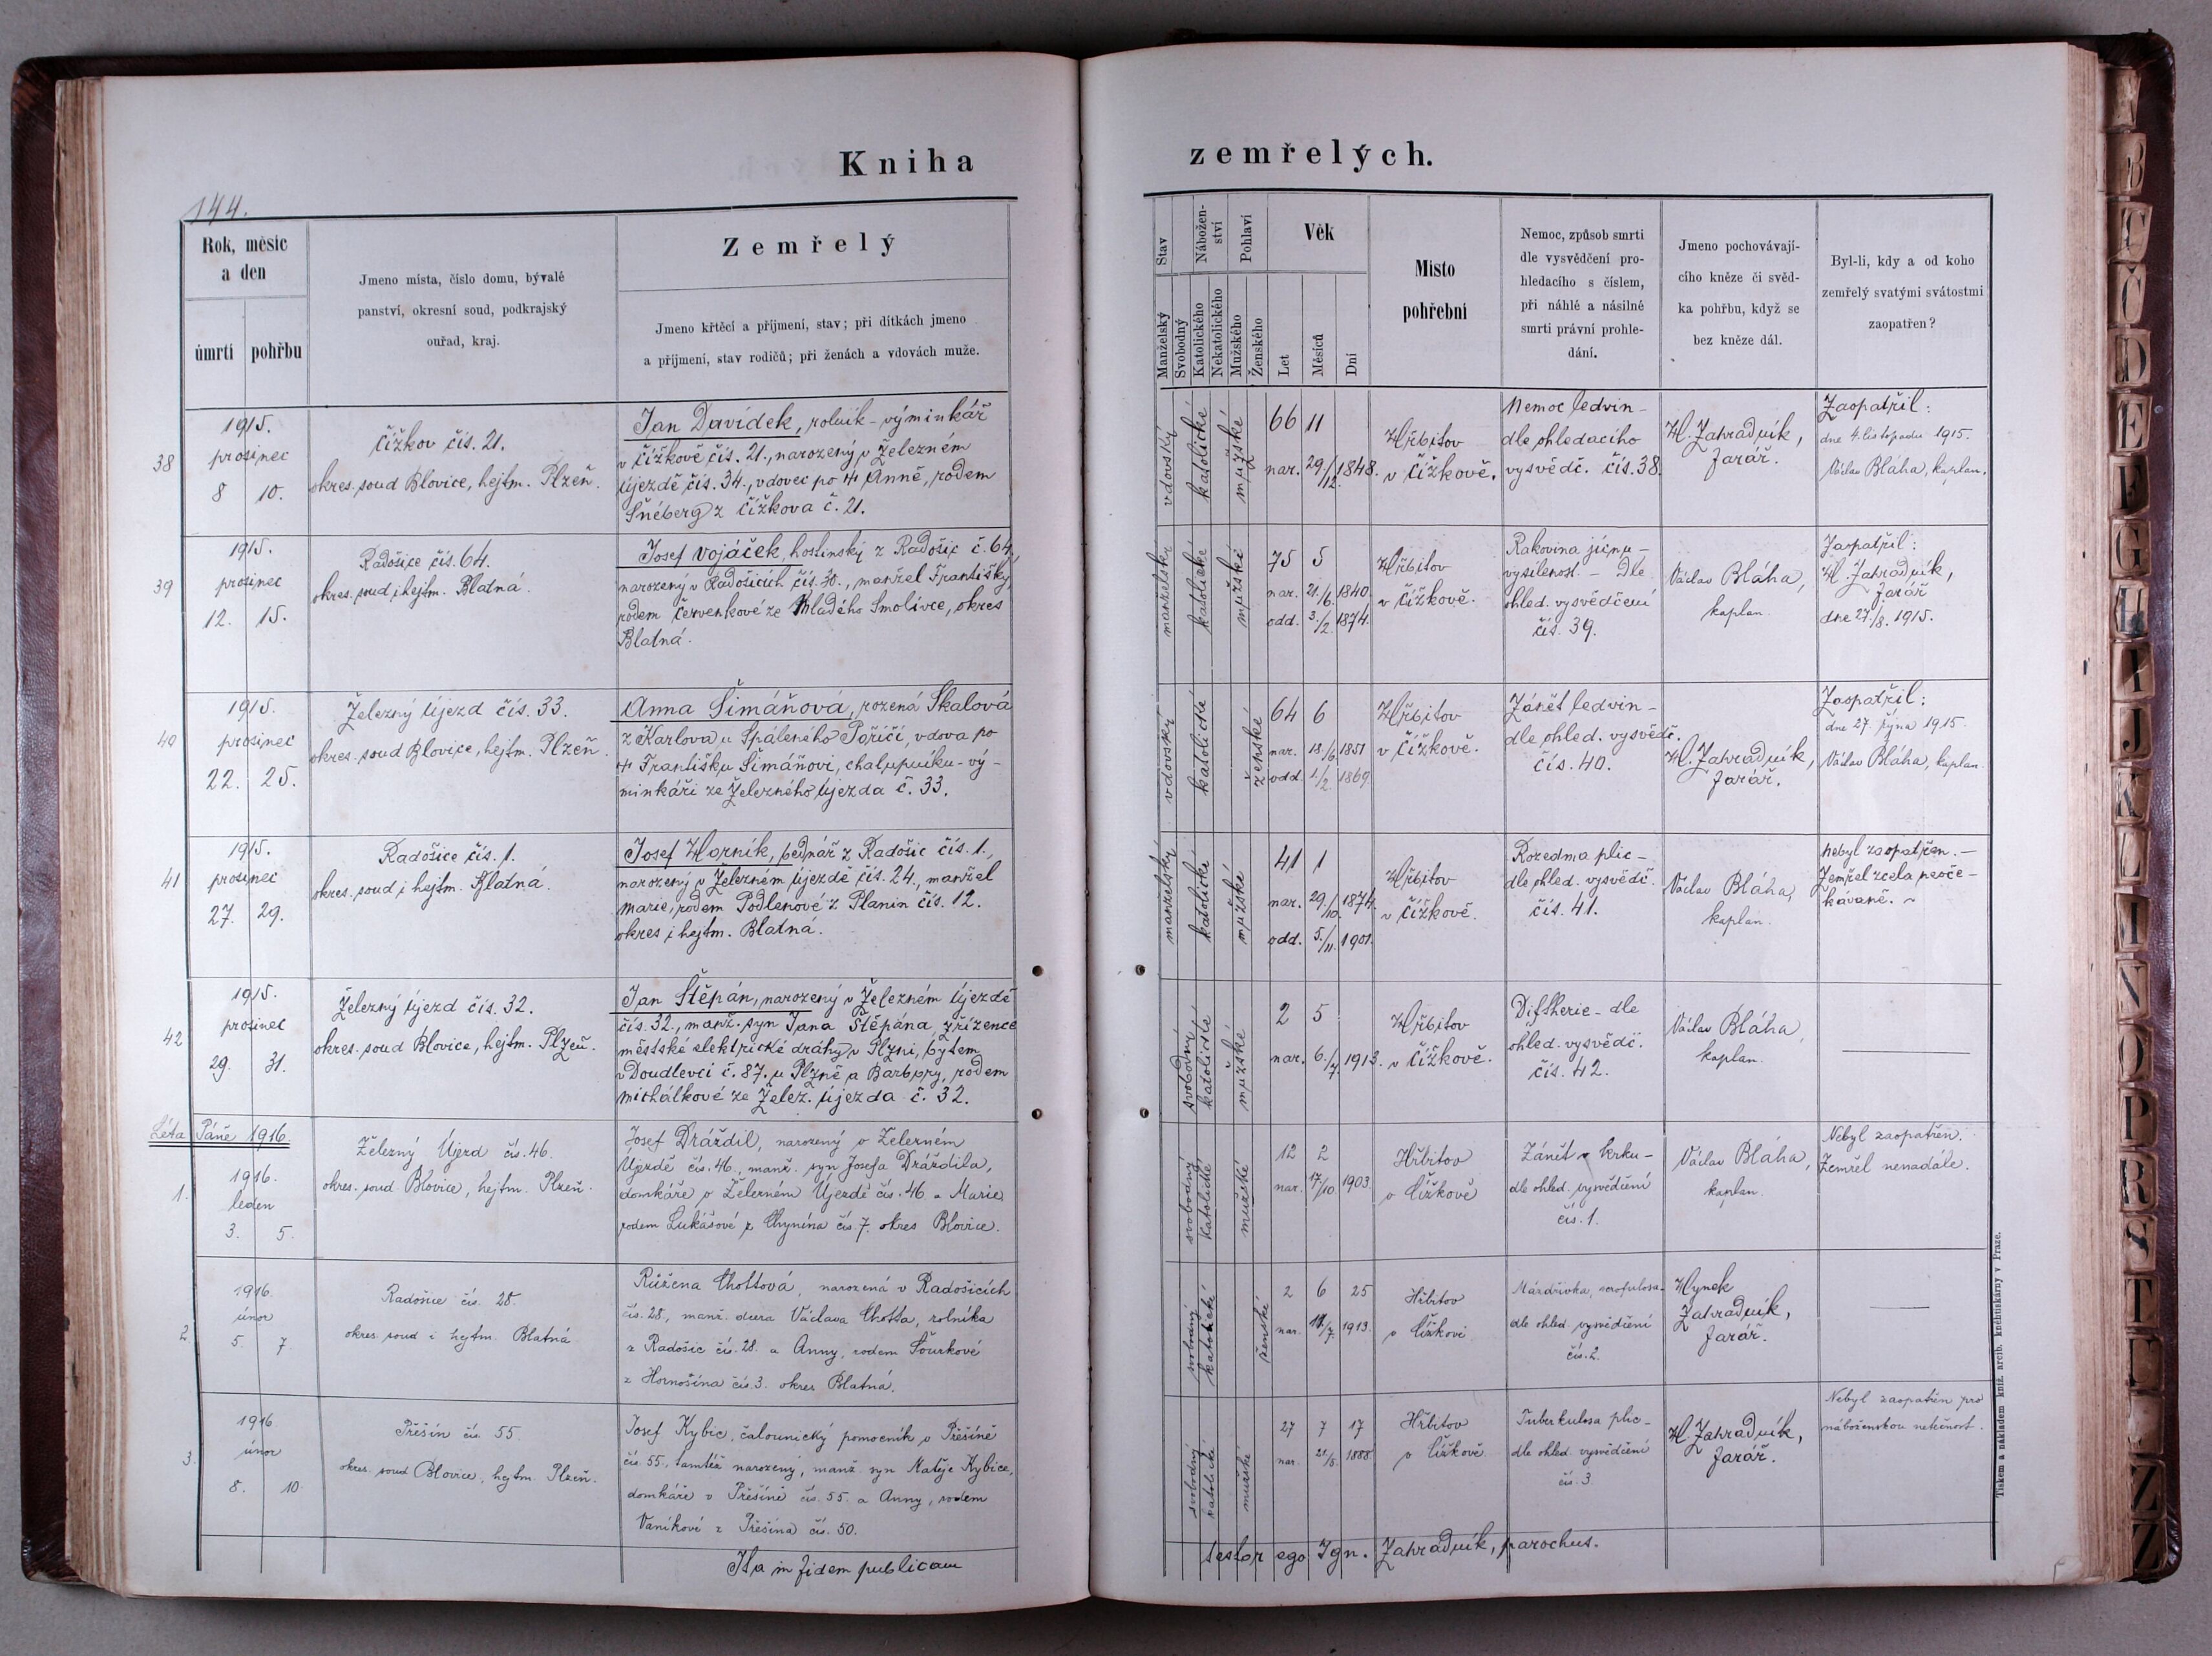 Kniha
zemřelých.
144.
Rok, měsíc
a den
úmrtí
pohřbu
Jmeno místa, číslo domu, bývalé
panství, okresní soud, podkrajský
ouřad, kraj.
Zemřelý
Jmeno křtěcí a příjmení, stav; při dítkách jmeno
a příjmení, stav rodičů; při ženách a vdovách muže.
Stav
Manželský
Svobodný
Nábožen-
ství
Katolického
Nekatolického
Pohlaví
Mužského
Ženského
Věk
Let
Měsíců
Dní
Místo
pohřební
Nemoc, způsob smrti
dle vysvědčení pro-
hledacího s číslem,
při náhlé a násilné
smrti právní prohle-
dání.
Jmeno pochovávají-
cího kněze či svěd-
ka pohřbu, když se
bez kněze dál.
Byl-li, kdy a od koho
zemřelý svatými svátostmi
zaopatřen?
38
1915.
prosinec
8 10.
Čížkov čís. 21.
okres. soud Blovice, hejtm. Plzeň.
Jan Davídek, rolník - výminkář
v Čížkově čís. 21., narozený v Železném
Újezdě čís. 34., vdovec po Anně, rodem
Šnéberg z Čížkova č. 21.
vdovský
katolické
mužské
66 11
nar. 29./12. 1848.
Hřbitov
v Čížkově.
Nemoc ledvin -
dle ohledacího
vysvědč. čís. 38.
H. Zahradník,
farář.
Zaopatřil:
dne 4. listopadu 1915.
Václav Bláha, kaplan.
39
1915.
prosinec
12. 15.
Radošice čís. 64.
okres. soud i hejtm. Blatná.
Josef Vojáček, hostinský z Radošic č. 64.,
narozený v Radošicích čís. 30., manžel Františky,
rodem Červenkové ze Mladého Smolivce, okres
Blatná.
manželský
katolické
mužské
75 5
nar. 21./6. 1840.
odd. 3./2. 1874.
Hřbitov
v Čížkově.
Rakovina jícnu -
vysílenost. - Dle
ohled. vysvědčení
čís. 39.
Václav Bláha,
kaplan.
Zaopatřil:
H. Zahradník,
farář
dne 27./8. 1915.
40
1915.
prosinec
22. 25.
Železný Újezd čís. 33.
okres. soud Blovice, hejtm. Plzeň.
Anna Šimáňová, rozená Skalová
z Karlova u Spáleného Poříčí, vdova po
Františku Šimáňovi, chalupníku - vý-
minkáři ze Železného Újezda č. 33.
vdovský
katolické
ženské
64 6
nar. 18./6. 1851
odd. 1./2. 1869
Hřbitov
v Čížkově.
Zánět ledvin -
dle ohled. vysvědč.
čís. 40.
H. Zahradník,
farář.
Zaopatřil:
dne 27. října 1915.
Václav Bláha, kaplan.
41
1915.
prosinec
27. 29.
Radošice čís. 1.
okres. soud i hejtm. Blatná.
Josef Horník, bednář z Radošic čís. 1.,
narozený v Železném Újezdě čís. 24., manžel
Marie, rodem Podlenové z Planin čís. 12.
okres i hejtm. Blatná.
manželský
katolické
mužské
41 1
nar. 29./10. 1874.
odd. 5./11. 1901.
Hřbitov
v Čížkově.
Rozedma plic -
dle ohled. vysvědč.
čís. 41.
Václav Bláha,
kaplan.
Nebyl zaopatřen. -
Zemřel zcela neoče-
kávaně. -
42
1915.
prosinec
29. 31.
Železný Újezd čís. 32.
okres. soud Blovice, hejtm. Plzeň.
Jan Štěpán, narozený v Železném Újezdě
čís. 32., manž. syn Jana Štěpána, zřízence
městské elektrické dráhy v Plzni, bytem
v Doudlevci č. 87. u Plzně a Barbory, rodem
Michálkové ze Želez. Újezda č. 32.
svobodný
katolické
mužské
2 5
nar. 6./7. 1913.
Hřbitov
v Čížkově.
Diftherie - dle
ohled. vysvědč.
čís. 42.
Václav Bláha,
kaplan.
Léta Páně 1916.
1.
1916.
leden
3. 5.
Železný Újezd čís. 46.
okres. soud Blovice, hejtm. Plzeň.
Josef Dráždil, narozený v Železném
Újezdě čís. 46., manž. syn Josefa Dráždila,
domkáře v Železném Újezdě čís. 46. a Marie
rodem Lukášové z Chynína čís. 7. okres Blovice.
svobodný
katolické
mužské
12 2
nar. 17/10. 1903.
Hřbitov
v Čížkově
Zánět v krku -
dle ohled. vysvědčení
čís. 1.
Václav Bláha,
kaplan.
Nebyl zaopatřen.
Zemřel nenadále.
2
1916.
únor
5. 7.
Radošice čís. 28.
okres. soud i hejtm. Blatná
Růžena Chottová, narozená v Radošicích
čís. 28., manž. dcera Václava Chotta, rolníka
z Radošic čís. 28. a Anny, rodem Šourkové
z Hornošína čís. 3. okres Blatná.
svobodný
katolické
ženské
2 6 25
nar. /7. 1913.
Hřbitov
v Čížkově
dle ohled. vysvědčení
čís. 2.
Hynek
Zahradník,
farář.
3.
1916.
únor
8. 10.
Přešín čís. 55.
okres. soud Blovice, hejtm. Plzeň.
Josef Kybic, čalounický pomocník v Přešíně
čís. 55., tamtéž narozený, manž. syn Matěje Kybice,
domkáře v Přešíně čís. 55. a Anny, rodem
Vaníkové z Přešína čís. 50.
svobodný
katolické
mužské
27 7 17
nar. 21/5. 1888.
Hřbitov
v Čížkově
Tuberkulosa plic -
dle ohled. vysvědčení
čís. 3.
H. Zahradník,
farář.
Nebyl zaopatřen pro
náboženskou netečnost.
Ita in fidem publicam
testor ego Ign. Zahradník, parochus.
Tiskem a nákladem kníž. arcib. kněhtiskárny v Praze.
A
B
C
Č
D
E
F
G
H
I
J
K
L
M
N
O
P
R
S
T
U
Z
Ž